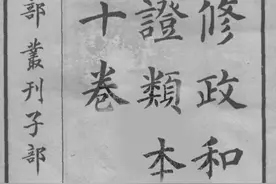 修政和
證類本
十卷
部叢刊子部